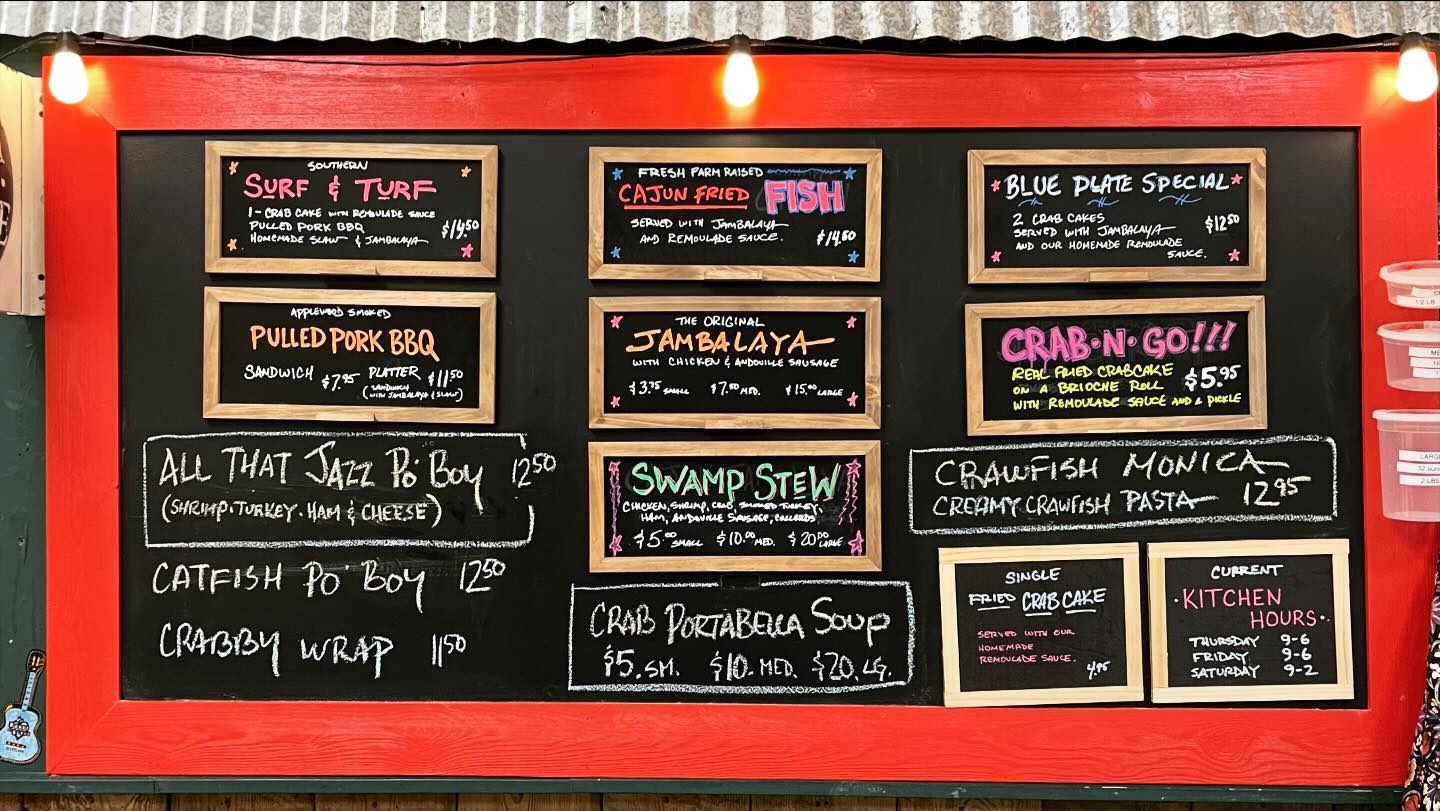 SOUTHERN
SURF & TURF
1 - CRAB CAKE WITH REMOULADE SAUCE
PULLED PORK BBQ
HOMEMADE SLAW & JAMBALAYA
$14.50
APPLEWOOD SMOKED
PULLED PORK BBQ
SANDWICH $7.95 PLATTER $11.50
(SANDWICH
WITH JAMBALAYA & SLAW)
ALL THAT JAZZ PO' BOY 12.50
(SHRIMP · TURKEY · HAM & CHEESE)
CATFISH PO' BOY 12.50
CRABBY WRAP 11.50
FRESH FARM RAISED
CAJUN FRIED FISH
SERVED WITH JAMBALAYA
AND REMOULADE SAUCE.
$14.50
THE ORIGINAL
JAMBALAYA
WITH CHICKEN & ANDOUILLE SAUSAGE
$3.75 SMALL $7.50 MED. $15.00 LARGE
SWAMP STEW
CHICKEN, SHRIMP, CRAB, SMOKED TURKEY,
HAM, ANDOUILLE SAUSAGE, COLLARDS
$5.00 SMALL $10.00 MED. $20.00 LARGE
CRAB PORTABELLA SOUP
$5. SM. $10. MED. $20. LG.
BLUE PLATE SPECIAL
2 CRAB CAKES
SERVED WITH JAMBALAYA
AND OUR HOMEMADE REMOULADE
SAUCE.
$12.50
CRAB · N · GO!!!
REAL FRIED CRABCAKE
ON A BRIOCHE ROLL
WITH REMOULADE SAUCE AND A PICKLE
$5.95
CRAWFISH MONICA
CREAMY CRAWFISH PASTA 12.95
SINGLE
FRIED CRAB CAKE
SERVED WITH OUR
HOMEMADE
REMOULADE SAUCE.
4.95
CURRENT
· KITCHEN
HOURS ·
THURSDAY 9-6
FRIDAY 9-6
SATURDAY 9-2
1/2 LB
LARG
2 LBS